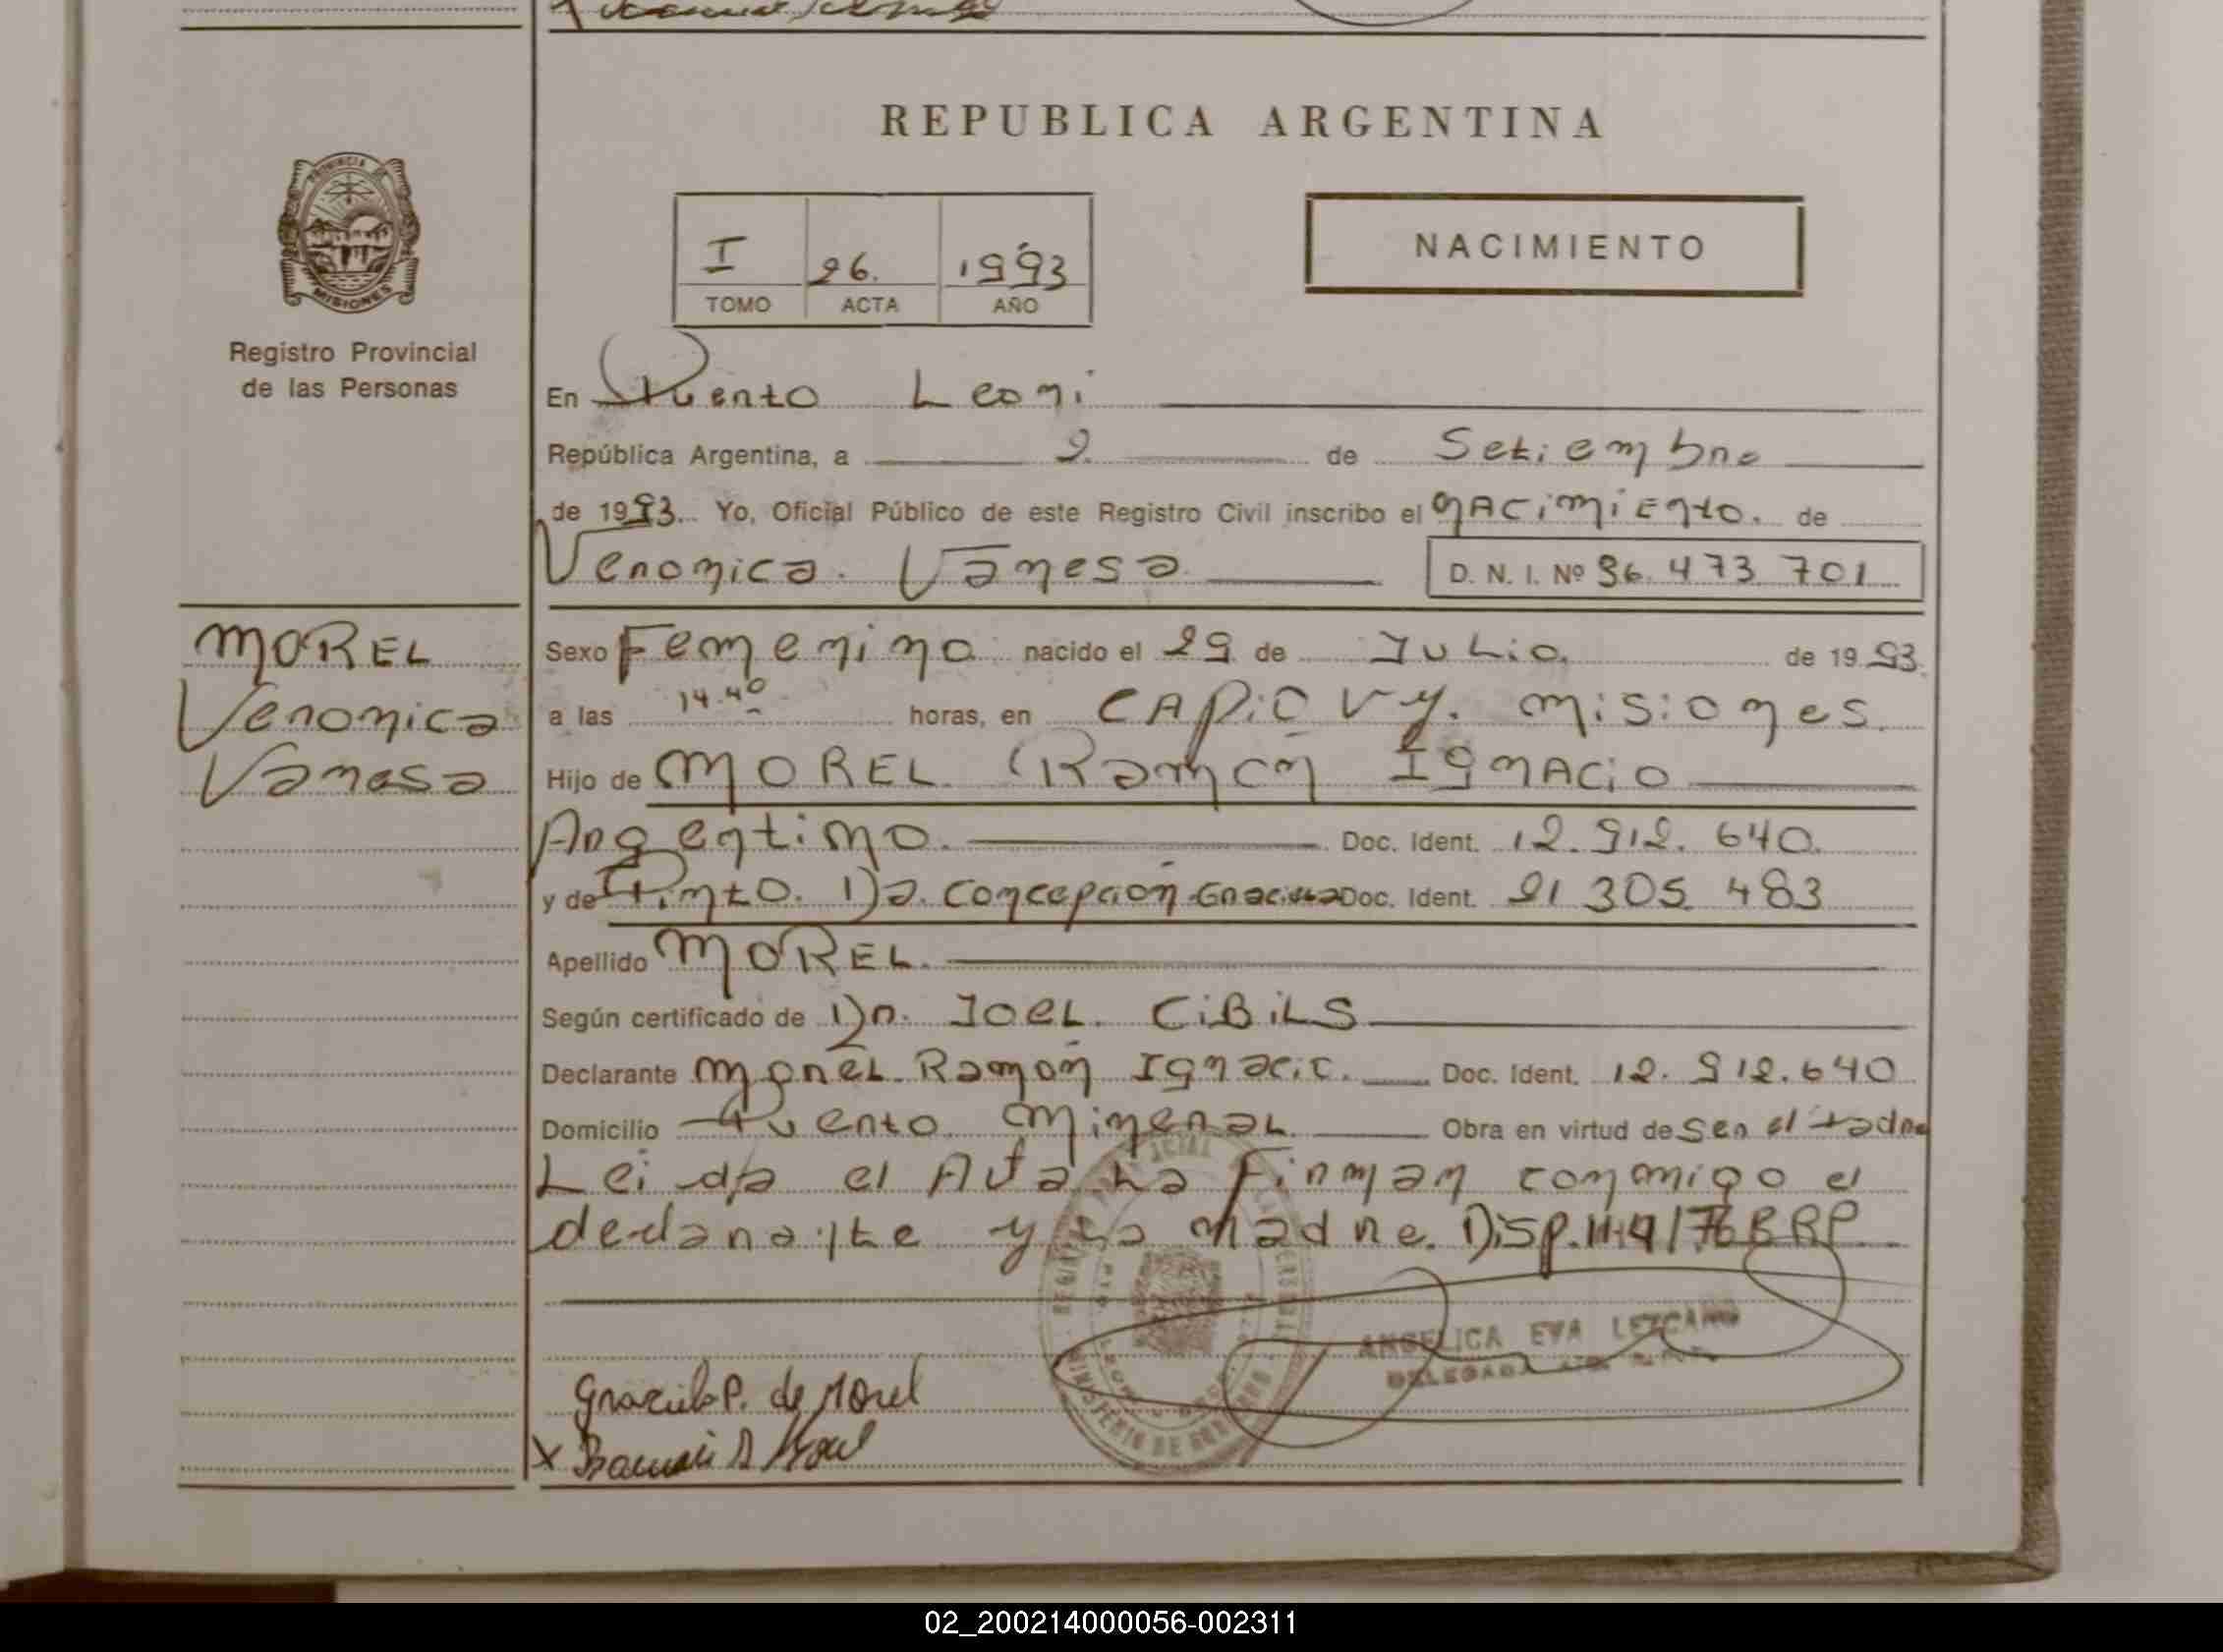 REPUBLICA ARGENTINA
PROVINCIA DE
MISIONES
Registro Provincial
de las Personas
I 26. 1993
TOMO ACTA AÑO
NACIMIENTO
En Puerto Leoni
República Argentina, a 2 de Setiembre
de 1993. Yo, Oficial Público de este Registro Civil inscribo el NACIMIENTO. de
Veronica. Vanesa D. N. I. Nº 36.473 701
MOREL
Veronica
Vanesa
Sexo Femenino nacido el 29 de Julio. de 1993.
a las 14.40 horas, en CAPIOVY. Misiones.
Hijo de MOREL Ramón Ignacio
Argentino. Doc. Ident. 12.912.640.
y de Pinto. Da. Concepción Graciela Doc. Ident. 21 305 483
Apellido MOREL.
Según certificado de Dr. JOEL. CIBILS
Declarante Morel Ramón Ignacio. Doc. Ident. 12.912.640
Domicilio Puerto Mineral Obra en virtud de ser el Padre
Leida el Acta La Firman conmigo el
declarante y La Madre. Disp. 114/76 RRP
ANGELICA EVA LEZCANO
DELEGADA
Graciela P. de Morel
X Ramón I Morel
02_200214000056-002311